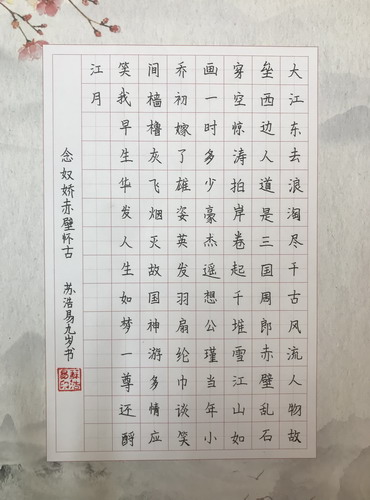 大江东去浪淘尽千古风流人物故
垒西边人道是三国周郎赤壁乱石
穿空惊涛拍岸卷起千堆雪江山如
画一时多少豪杰遥想公瑾当年小
乔初嫁了雄姿英发羽扇纶巾谈笑
间樯橹灰飞烟灭故国神游多情应
笑我早生华发人生如梦一尊还酹
江月
念奴娇赤壁怀古 苏浩易九岁书